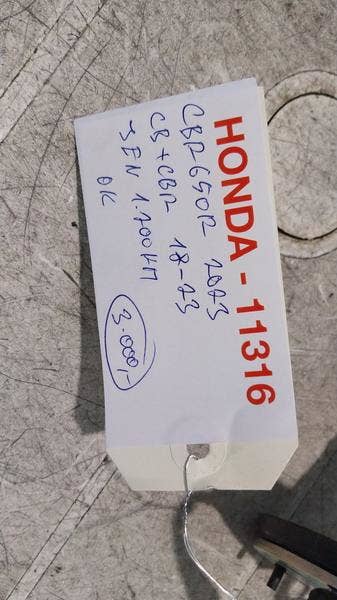 HONDA - 11316
CBR650R 2023
CB + CBR 18-23
JEN 1.700KM
OK
3.000,-